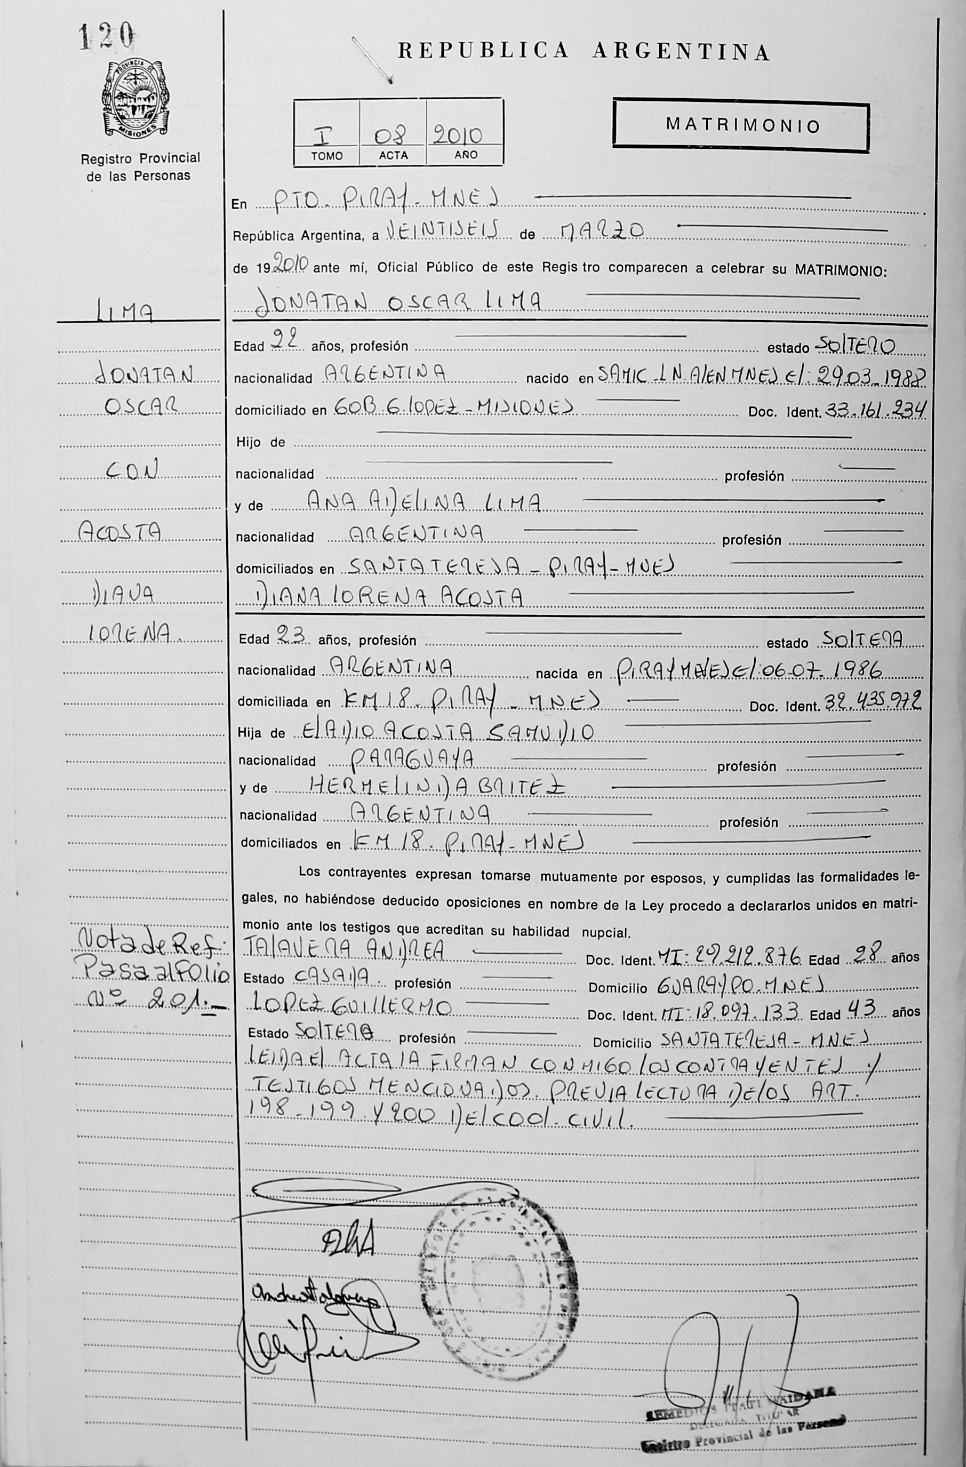 120
PROVINCIA DE
MISIONES
Registro Provincial
de las Personas
REPUBLICA ARGENTINA
I 08 2010
TOMO ACTA AÑO
MATRIMONIO
En PTO. PIRAY - MNES
República Argentina, a VEINTISEIS de MARZO
de 19 2010 ante mí, Oficial Público de este Registro comparecen a celebrar su MATRIMONIO:
LIMA
JONATAN OSCAR LIMA
Edad 22 años, profesión estado SOLTERO
JONATAN
nacionalidad ARGENTINA nacido en SAMIC - LN. ALEN MNES El: 29.03.1988
OSCAR
domiciliado en GOB. G. LOPEZ - MISIONES Doc. Ident. 33.161.234
Hijo de
CON
nacionalidad profesión
y de ANA ADELINA LIMA
ACOSTA
nacionalidad ARGENTINA profesión
domiciliados en SANTA TERESA - PIRAY - MNES
DIANA
DIANA LORENA ACOSTA
LORENA.
Edad 23 años, profesión estado SOLTERA
nacionalidad ARGENTINA nacida en PIRAY MNES El: 06-07-1986
domiciliada en KM 18. PIRAY - MNES Doc. Ident. 32.435.972
Hija de ELADIO ACOSTA SAMUDIO
nacionalidad PARAGUAYA profesión
y de HERMELINDA BRITEZ
nacionalidad ARGENTINA profesión
domiciliados en KM 18. PIRAY - MNES
Los contrayentes expresan tomarse mutuamente por esposos, y cumplidas las formalidades le-
gales, no habiéndose deducido oposiciones en nombre de la Ley procedo a declararlos unidos en matri-
monio ante los testigos que acreditan su habilidad nupcial.
Nota de Ref:
Pasa al Folio
Nº 201.-
TALAVERA ANDREA Doc. Ident. MI: 29.212.876 Edad 28 años
Estado CASADA profesión Domicilio GUARAYPO. MNES
LOPEZ GUILLERMO Doc. Ident. MI: 18.097.133 Edad 43 años
Estado SOLTERO profesión Domicilio SANTA TERESA - MNES
LEIDA El ACTA LA FIRMAN CONMIGO LOS CONTRAYENTES Y
TESTIGOS MENCIONADOS. PREVIA LECTURA DE LOS ART.
198-199 Y 200 DEL COD. CIVIL.
Registro Provincial de las Personas